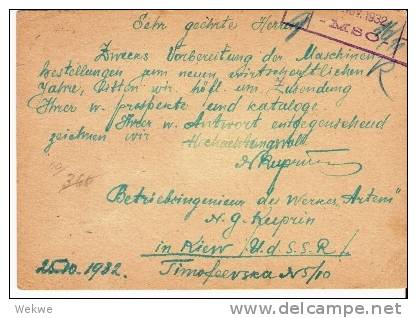 Sehr geehrte Herren
1932
- MSO
Zwecks Vorbereitung der Maschinen
bestellungen zum neuen wirtschaftlichen
Jahre, bitten wir höfl. um Zusendung
Ihrer w. prospekte und kataloge
Ihrer w. Antwort entgegensehend
zeichnen wir Hochachtungsvoll
N Kuprin
360
Betriebsingenieur des Werkes „Artem"
N. G. Kuprin
in Kiew /U.d.S.S.R/
25.10.1932. Timofeevska N5/10
Wekwe
delcampe.net